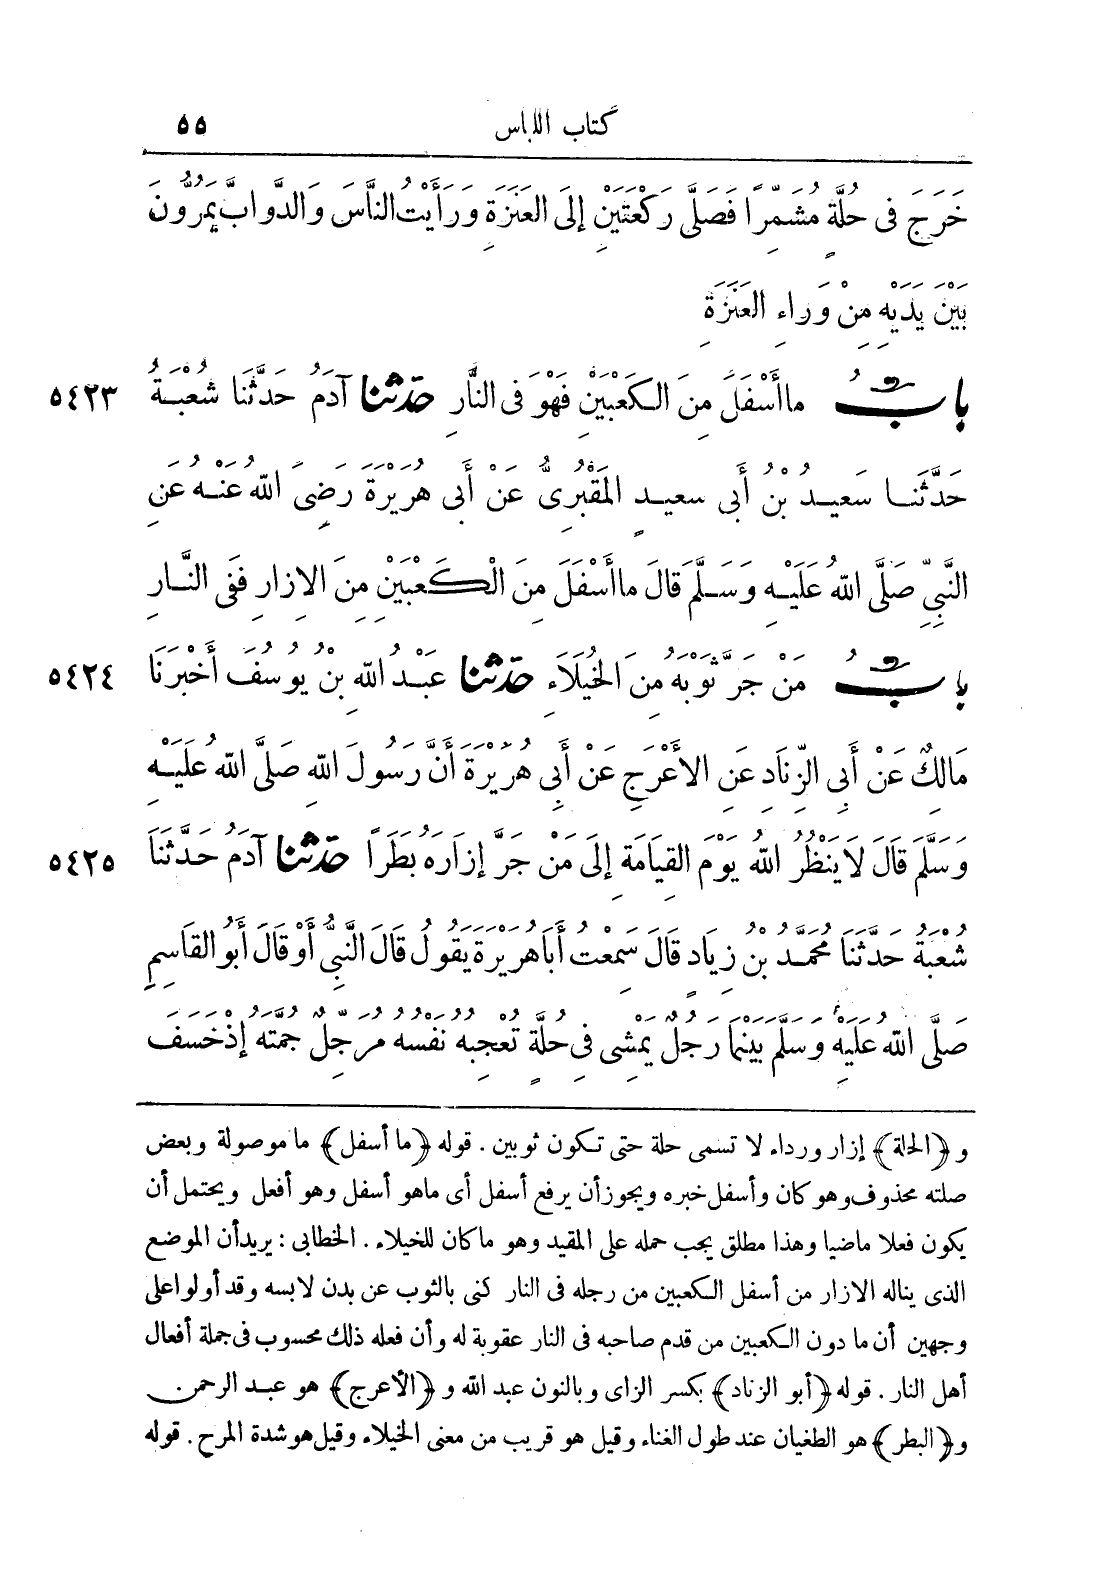 كتاب اللباس ٥٥
خَرَجَ فى حُلَّةٍ مُشَمِّرًا فَصَلَّى رَكْعَتَيْنِ إِلَى العَنَزَةِ وَرَأَيْتُ النَّاسَ وَالدَّوَابَّ يَمُرُّونَ
بَيْنَ يَدَيْهِ مِنْ وَرَاءِ العَنَزَةِ
بابُ مَا أَسْفَلَ مِنَ الكَعْبَيْنِ فَهْوَ فى النَّارِ حدّثنا آدَمُ حَدَّثَنَا شُعْبَةُ ٥٤٢٣
حَدَّثَنَا سَعِيدُ بْنُ أَبى سَعِيدٍ المَقْبُرِىُّ عَنْ أَبى هُرَيْرَةَ رَضِىَ اللهُ عَنْهُ عَنِ
النَّبِىِّ صَلَّى اللهُ عَلَيْهِ وَسَلَّمَ قَالَ مَا أَسْفَلَ مِنَ الْكَعْبَيْنِ مِنَ الازَارِ فَفِى النَّارِ
بابُ مَنْ جَرَّ ثَوْبَهُ مِنَ الخُيَلَاءِ حدّثنا عَبْدُ اللهِ بْنُ يُوسُفَ أَخْبَرَنَا ٥٤٢٤
مَالِكٌ عَنْ أَبِى الزِّنَادِ عَنِ الأَعْرَجِ عَنْ أَبِى هُرَيْرَةَ أَنَّ رَسُولَ اللهِ صَلَّى اللهُ عَلَيْهِ
وَسَلَّمَ قَالَ لَا يَنْظُرُ اللهُ يَوْمَ القِيَامَةِ إِلَى مَنْ جَرَّ إِزَارَهُ بَطَرًا حدّثنا آدَمُ حَدَّثَنَا ٥٤٢٥
شُعْبَةُ حَدَّثَنَا مُحَمَّدُ بْنُ زِيَادٍ قَالَ سَمِعْتُ أَبَا هُرَيْرَةَ يَقُولُ قَالَ النَّبِىُّ أَوْ قَالَ أَبُو القَاسِمِ
صَلَّى اللهُ عَلَيْهِ وَسَلَّمَ بَيْنَمَا رَجُلٌ يَمْشِى فِى حُلَّةٍ تُعْجِبُهُ نَفْسُهُ مُرَجِّلٌ جُمَّتَهُ إِذْ خَسَفَ
و﴿الحلة﴾ إزار ورداء لا تسمى حلة حتى تكون ثوبين . قوله ﴿ما أسفل﴾ ما موصولة وبعض
صلته محذوف وهو كان وأسفل خبره ويجوز أن يرفع أسفل أى ماهو أسفل وهو أفعل ويحتمل أن
يكون فعلا ماضيا وهذا مطلق يجب حمله على المقيد وهو ما كان للخيلاء . الخطابى : يريد أن الموضع
الذى يناله الازار من أسفل الكعبين من رجله فى النار كنى بالثوب عن بدن لابسه وقد أولوا على
وجهين أن ما دون الكعبين من قدم صاحبه فى النار عقوبة له وأن فعله ذلك محسوب فى جملة أفعال
أهل النار . قوله ﴿أبو الزناد﴾ بكسر الزاى وبالنون عبد الله و﴿الأعرج﴾ هو عبد الرحمن
و﴿البطر﴾ هو الطغيان عند طول الغناء وقيل هو قريب من معنى الخيلاء وقيل هو شدة المرح . قوله